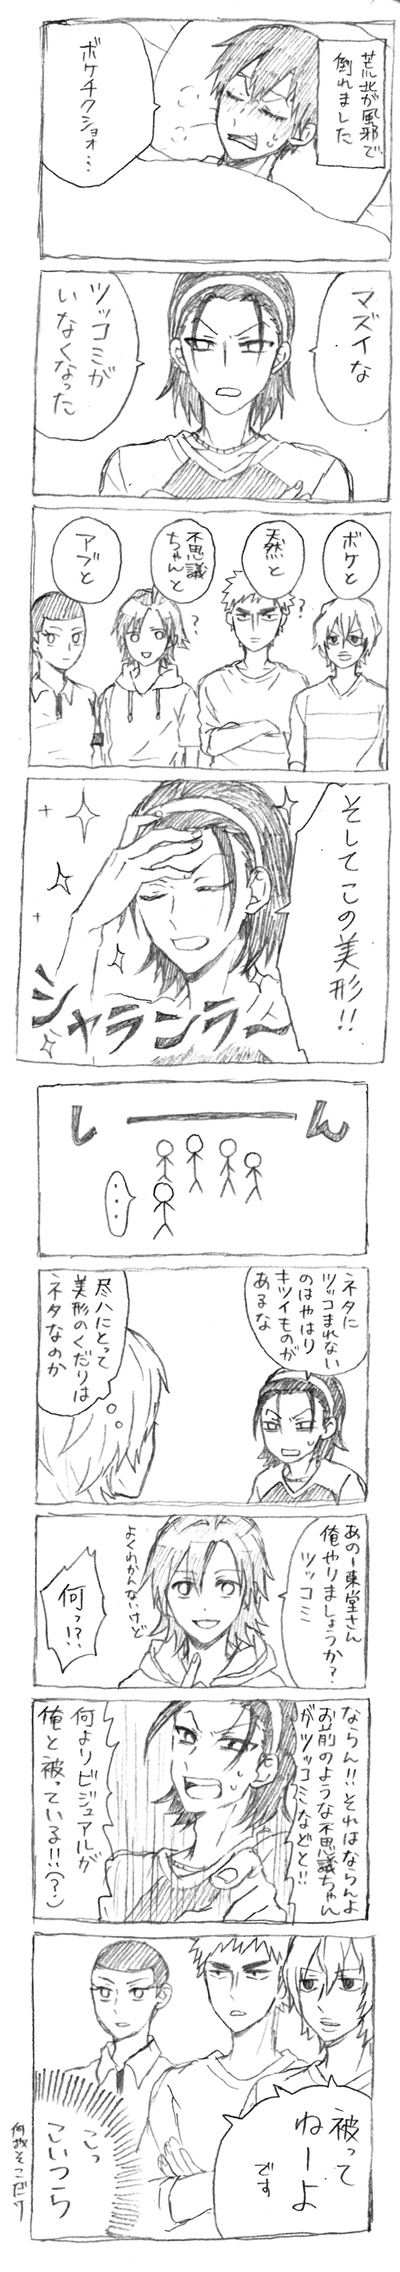 荒北が風邪で
倒れました
ボケチクショォ…
マズイな
ツッコミが
いなくなった
ボケと
天然と
不思議
ちゃんと
アブと
?
?
そしてこの美形!!
シャランラ~
しーーーん
・・・
ネタに
ツッコまれない
のはやはり
キツイものが
あるな
尽八にとって
美形のくだりは
ネタなのか
あのー東堂さん
俺やりましょうか?
ツッコミ
よくわかんないけど
何っ!?
ならん!!それはならんよ
お前のような不思議ちゃん
がツッコミなどと!!
何よりビジュアルが
俺と被っている!!(?)
被って
ねーよ
です
こっ
こいつら
何故そこだけ